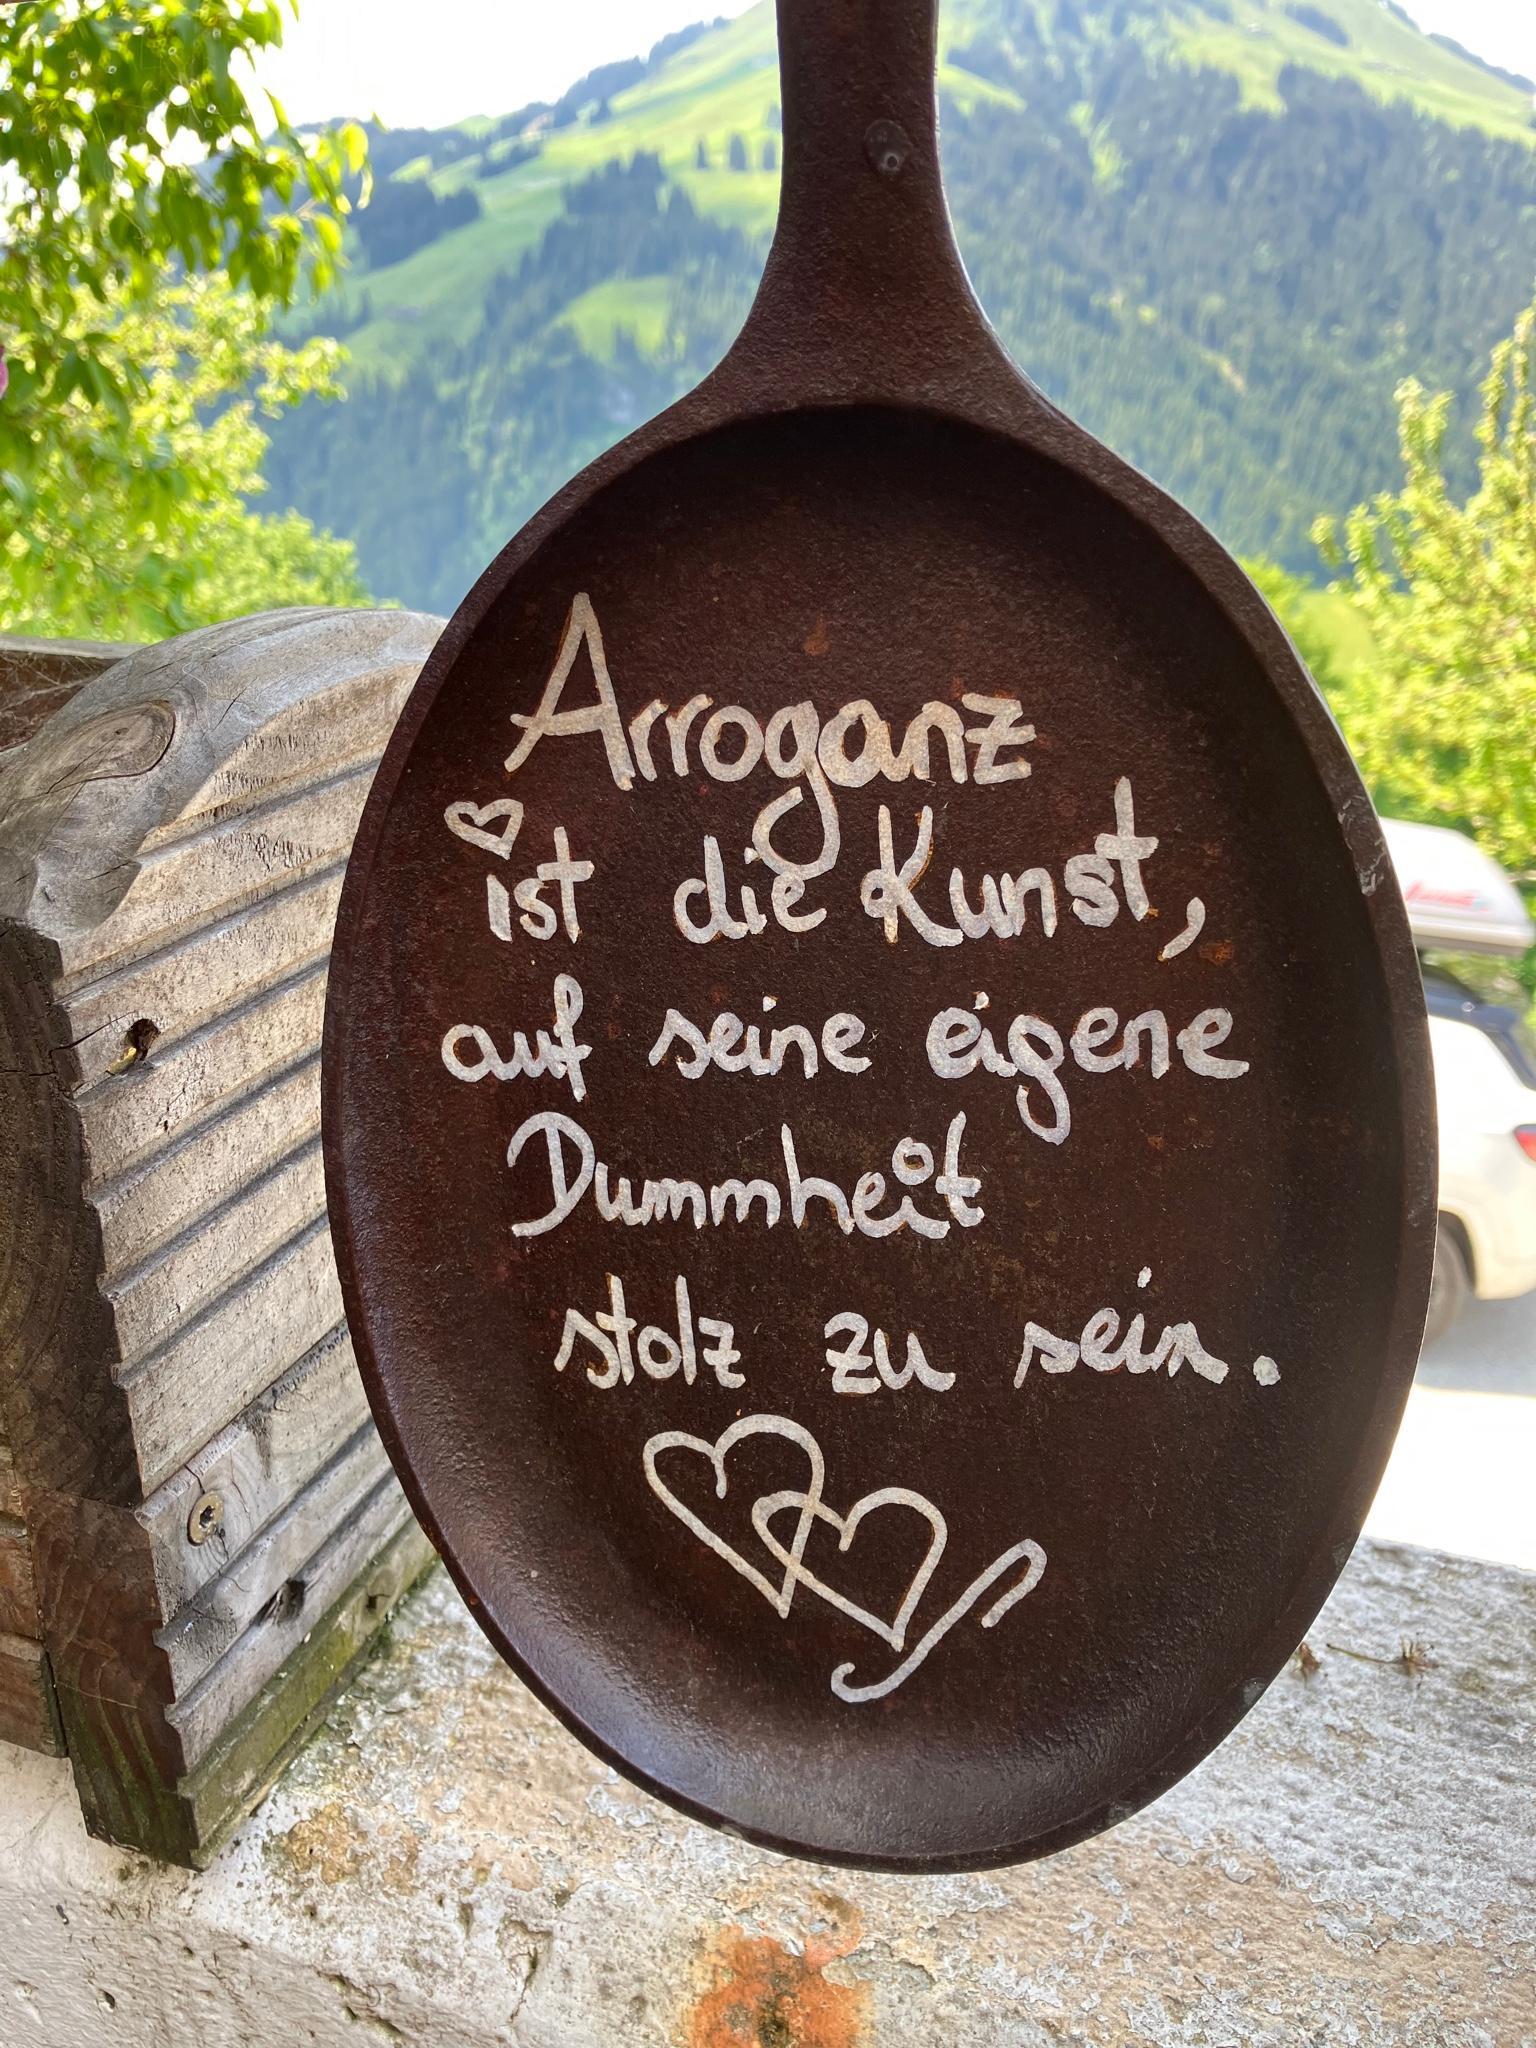 Arroganz
ist die Kunst,
auf seine eigene
Dummheit
stolz zu sein.